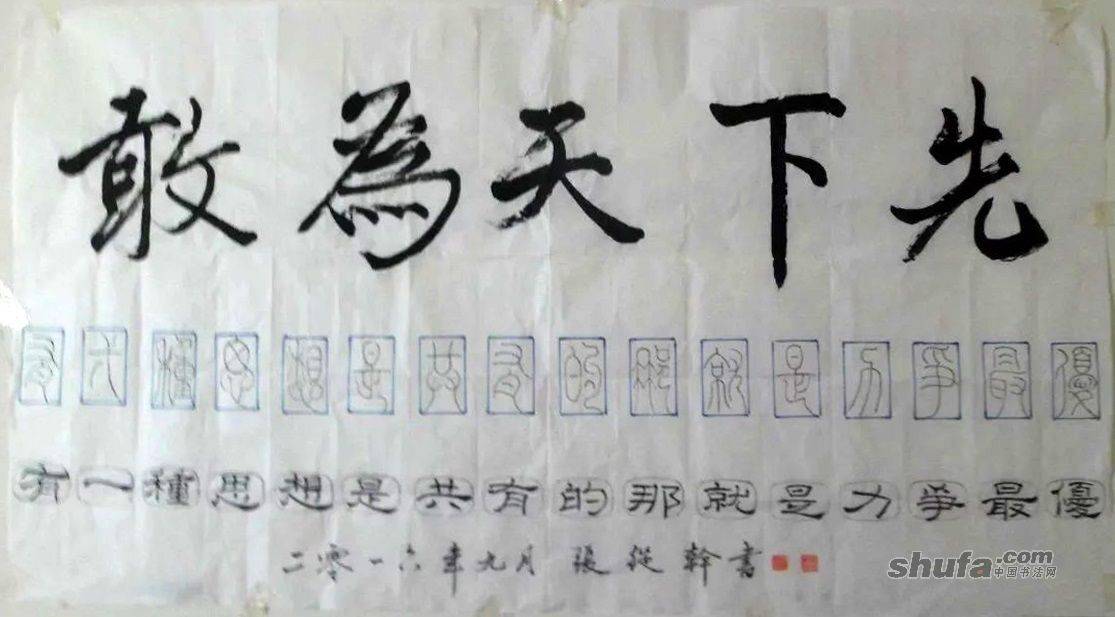 敢為天下先
有一種思想是共有的那就是力爭最優
有一種思想是共有的那就是力爭最優
二零一六年九月 張從幹書
shufa.com
中国书法网